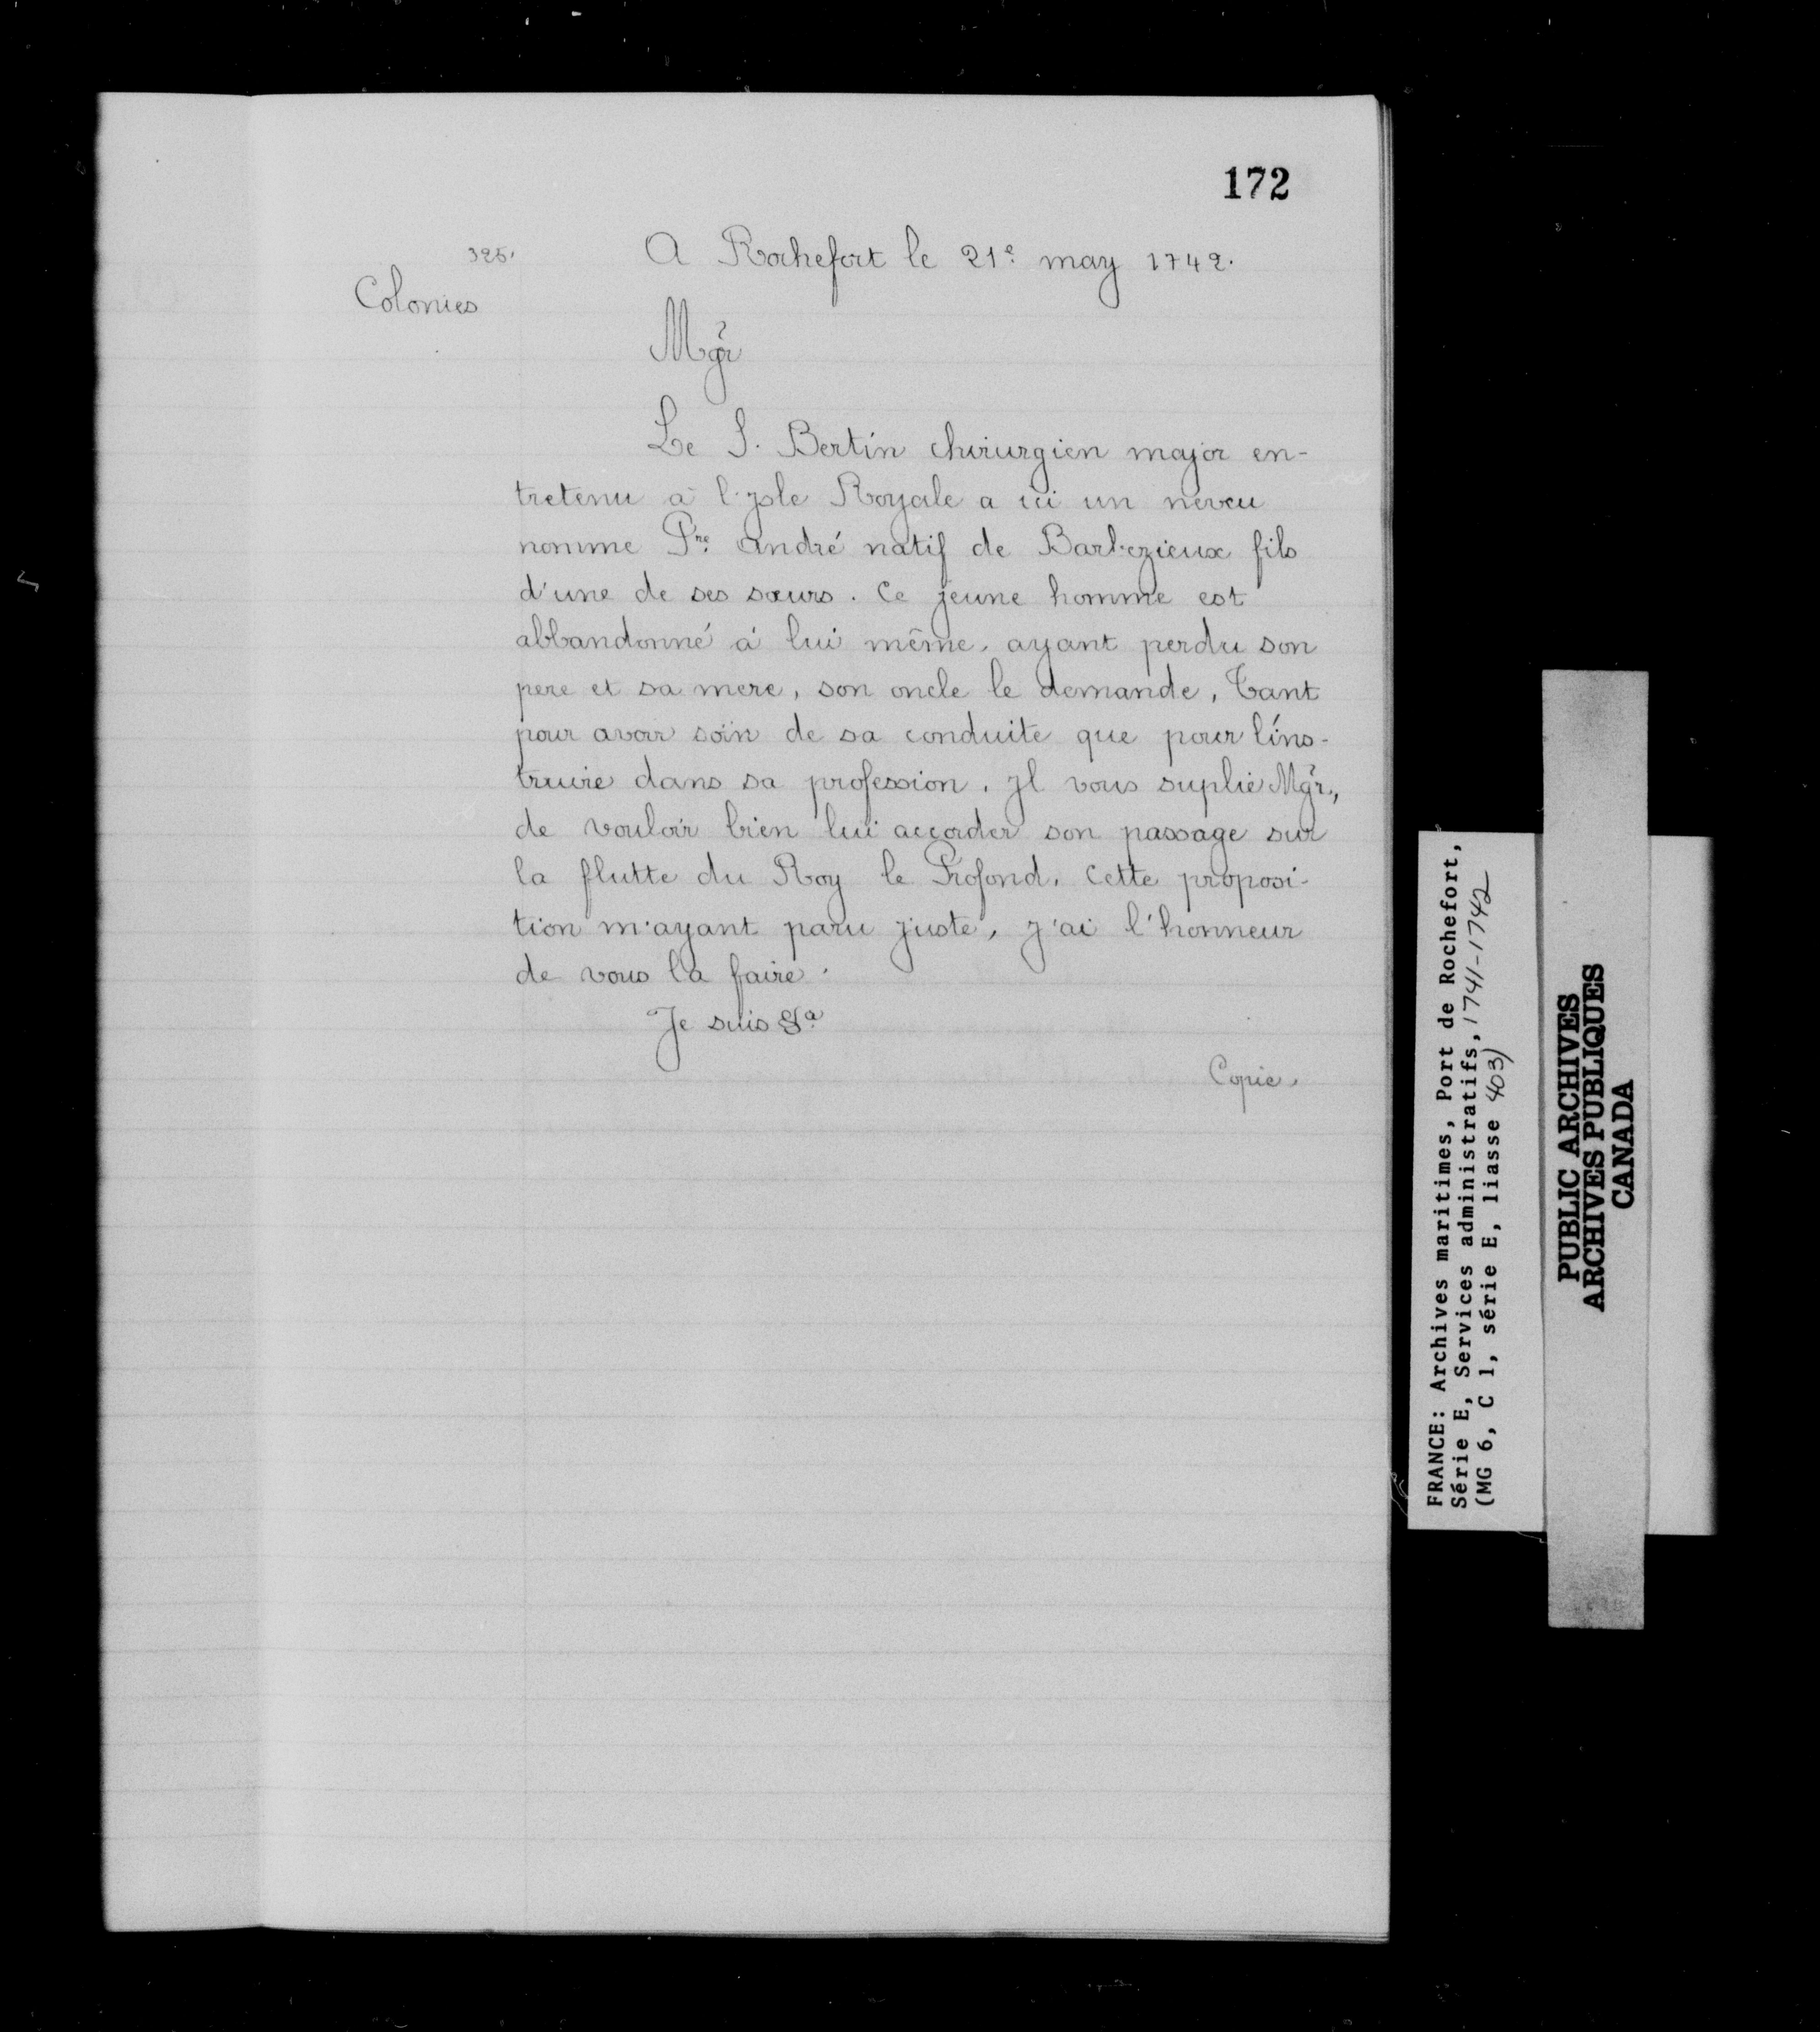 172
325.
Colonies
A Rochefort le 21e may 1742.
Mgr
Le S. Bertin chirurgien major en-
tretenu à l'ysle Royale a ici un neveu
nomme Pre. andré natif de Barbezieux fils
d'une de ses sœurs. Ce jeune homme est
abbandonné à lui même, ayant perdu son
pere et sa mere, son oncle le demande, Tant
pour avoir soin de sa conduite que pour l'ins-
truire dans sa profession. Jl vous suplie Mgr.,
de vouloir bien lui accorder son passage sur
la flutte du Roy le Profond. Cette proposi-
tion m'ayant paru juste, j'ai l'honneur
de vous la faire.
Je suis &a
Copie.
FRANCE: Archives maritimes, Port de Rochefort,
Série E, Services administratifs, 1741-1742
(MG 6, C 1, série E, liasse 403)
PUBLIC ARCHIVES
ARCHIVES PUBLIQUES
CANADA